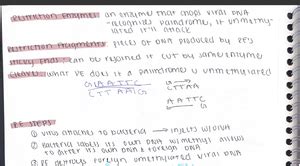 restriction enzymes: an enzyme that chops viral DNA
recognizes palindrome, if unmethy-
lated it'll attack
restriction fragments: pieces of DNA produced by RE's
sticky ends: can be rejoined if cut by same enzyme
what RE does if a palindrome is unmethylated
GAATTC G
CTTAAG CTTAA
AATTC
G
RE STEPS
① virus attaches to bacteria → injects viral DNA
② bacteria labels its own DNA w/ methyl
to differ its own DNA & foreign DNA
③ RE destroys foreign unmethylated viral DNA